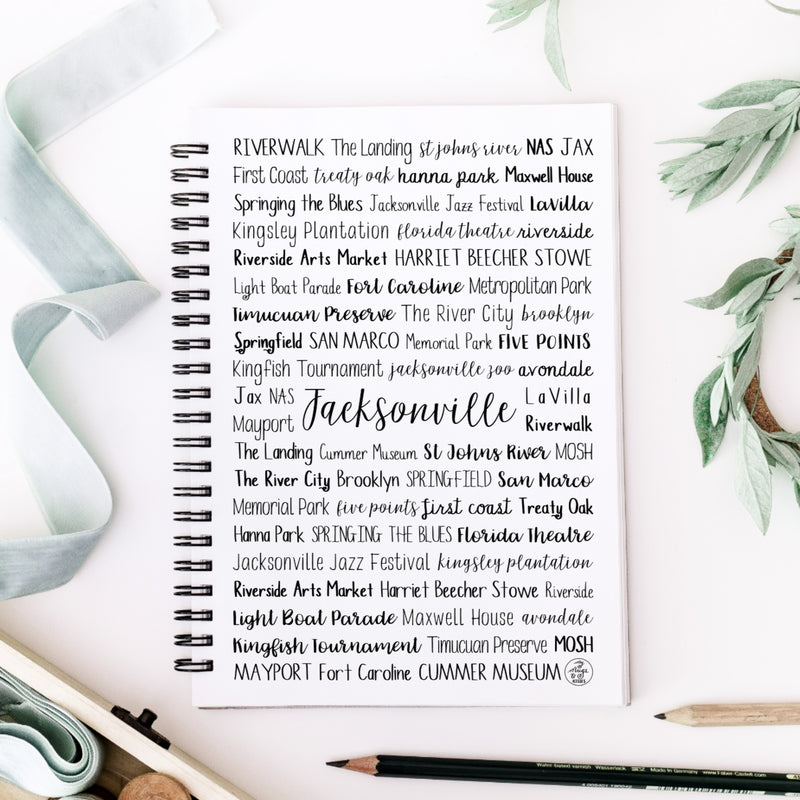 RIVERWALK The Landing st johns river NAS JAX
First Coast treaty oak hanna park Maxwell House
Springing the Blues Jacksonville Jazz Festival LaVilla
Kingsley Plantation florida theatre riverside
Riverside Arts Market HARRIET BEECHER STOWE
Light Boat Parade Fort Caroline Metropolitan Park
Timucuan Preserve The River City brooklyn
Springfield SAN MARCO Memorial Park FIVE POINTS
Kingfish Tournament jacksonville zoo avondale
Jax NAS
Mayport
Jacksonville
LaVilla
Riverwalk
The Landing Cummer Museum St Johns River MOSH
The River City Brooklyn SPRINGFIELD San Marco
Memorial Park five points first coast Treaty Oak
Hanna Park SPRINGING THE BLUES Florida Theatre
Jacksonville Jazz Festival kingsley plantation
Riverside Arts Market Harriet Beecher Stowe Riverside
Light Boat Parade Maxwell House avondale
Kingfish Tournament Timucuan Preserve MOSH
MAYPORT Fort Caroline CUMMER MUSEUM
Made in Germany www.Faber-Castell.com